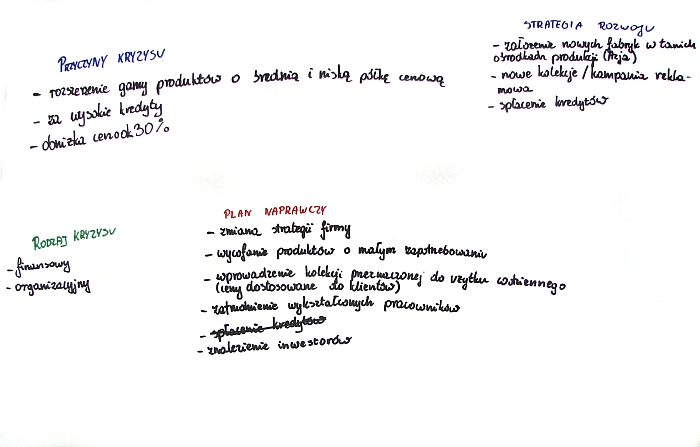 PRZYCZYNY KRYZYSU
- rozszerzenie gamy produktów o średnią i niską półkę cenową
- za wysokie kredyty
- obniżka cen ook 30%
STRATEGIA ROZWOJU
- założenie nowych fabryk w tanich
ośrodkach produkcji (Azja)
- nowe kolekcje / kampania rekla-
mowa
- spłacenie kredytów
RODZAJ KRYZYSU
- finansowy
- organizacyjny
PLAN NAPRAWCZY
- zmiana strategii firmy
- wycofanie produktów o małym zapotrzebowaniu
- wprowadzenie kolekcji przeznaczonej do użytku codziennego
(ceny dostosowane do klientów)
- zatrudnienie wykształconych pracowników
- spłacenie kredytów
- znalezienie inwestorów